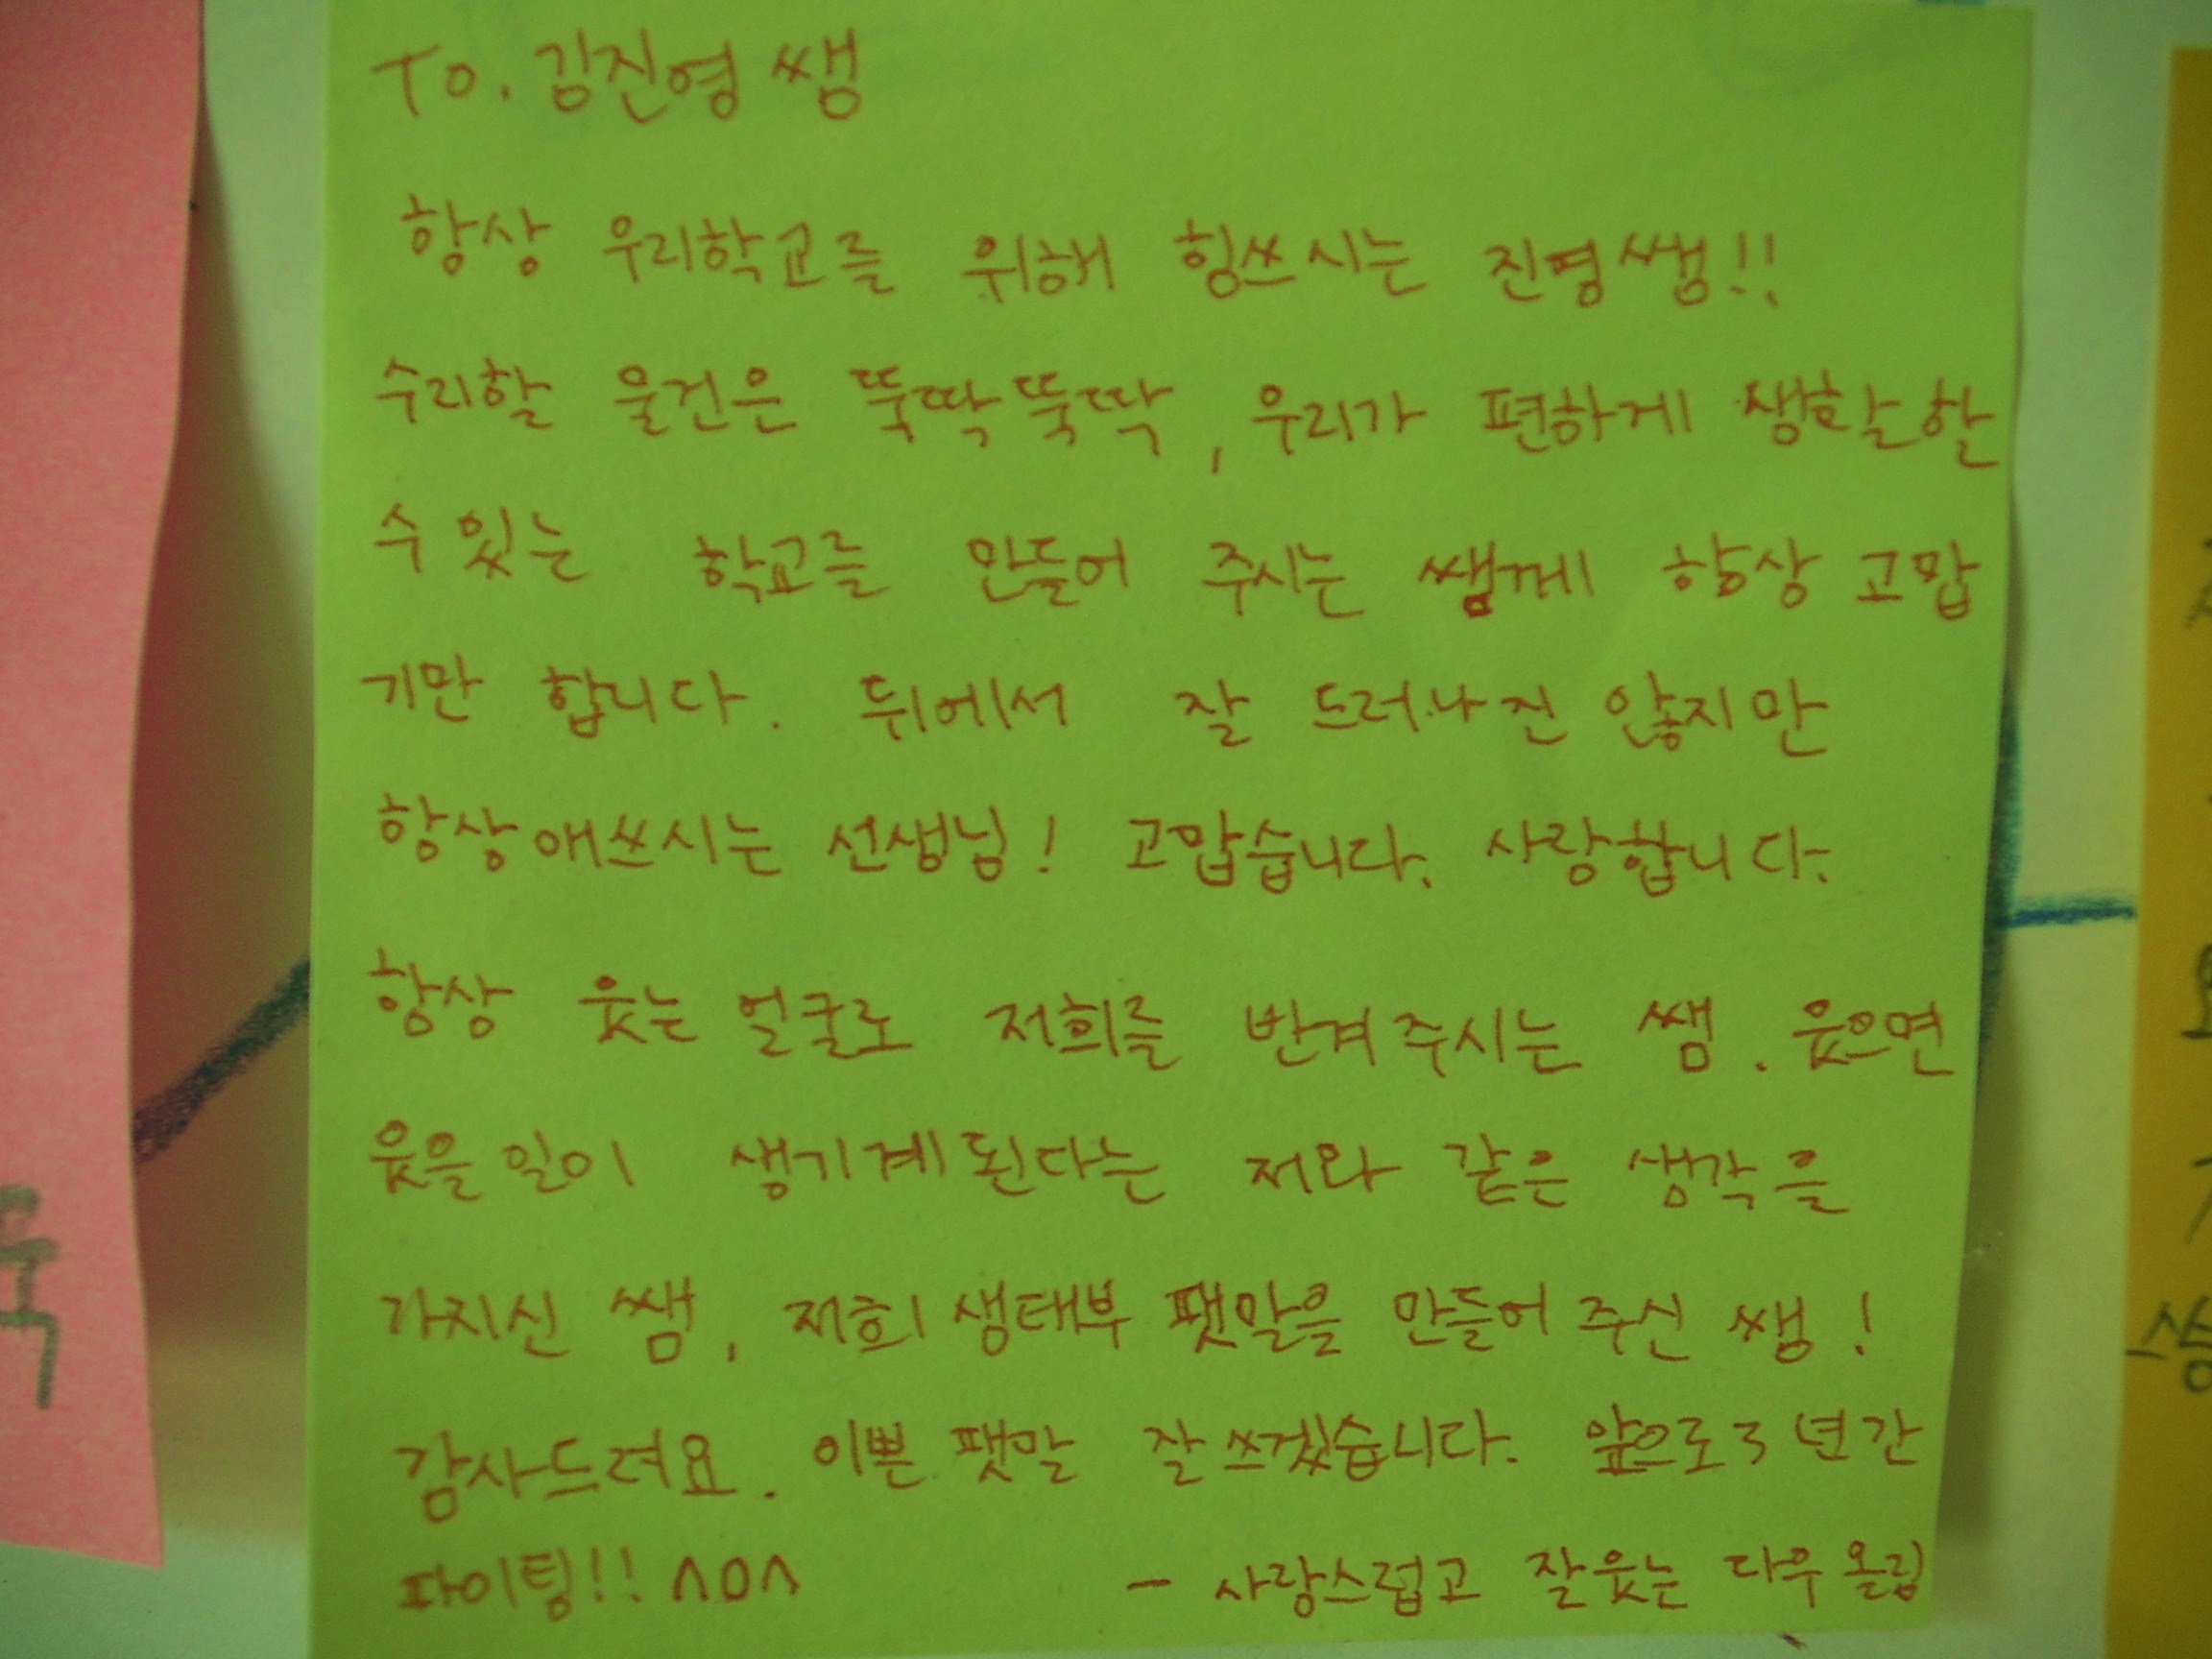 To. 김진영 쌤
항상 우리학교를 위해 힘쓰시는 진영쌤!!
수리할 물건은 뚝딱뚝딱, 우리가 편하게 생활할
수 있는 학교를 만들어 주시는 쌤께 항상 고맙
기만 합니다. 뒤에서 잘 드러나진 않지만
항상 애쓰시는 선생님! 고맙습니다. 사랑합니다.
항상 웃는 얼굴로 저희를 반겨주시는 쌤. 웃으면
웃을 일이 생기게 된다는 저와 같은 생각을
가지신 쌤, 저희 생태부 팻말을 만들어 주신 쌤!
감사드려요. 이쁜 팻말 잘 쓰겠습니다. 앞으로 3년간
파이팅!! ^o^ - 사랑스럽고 잘 웃는 다우 올림